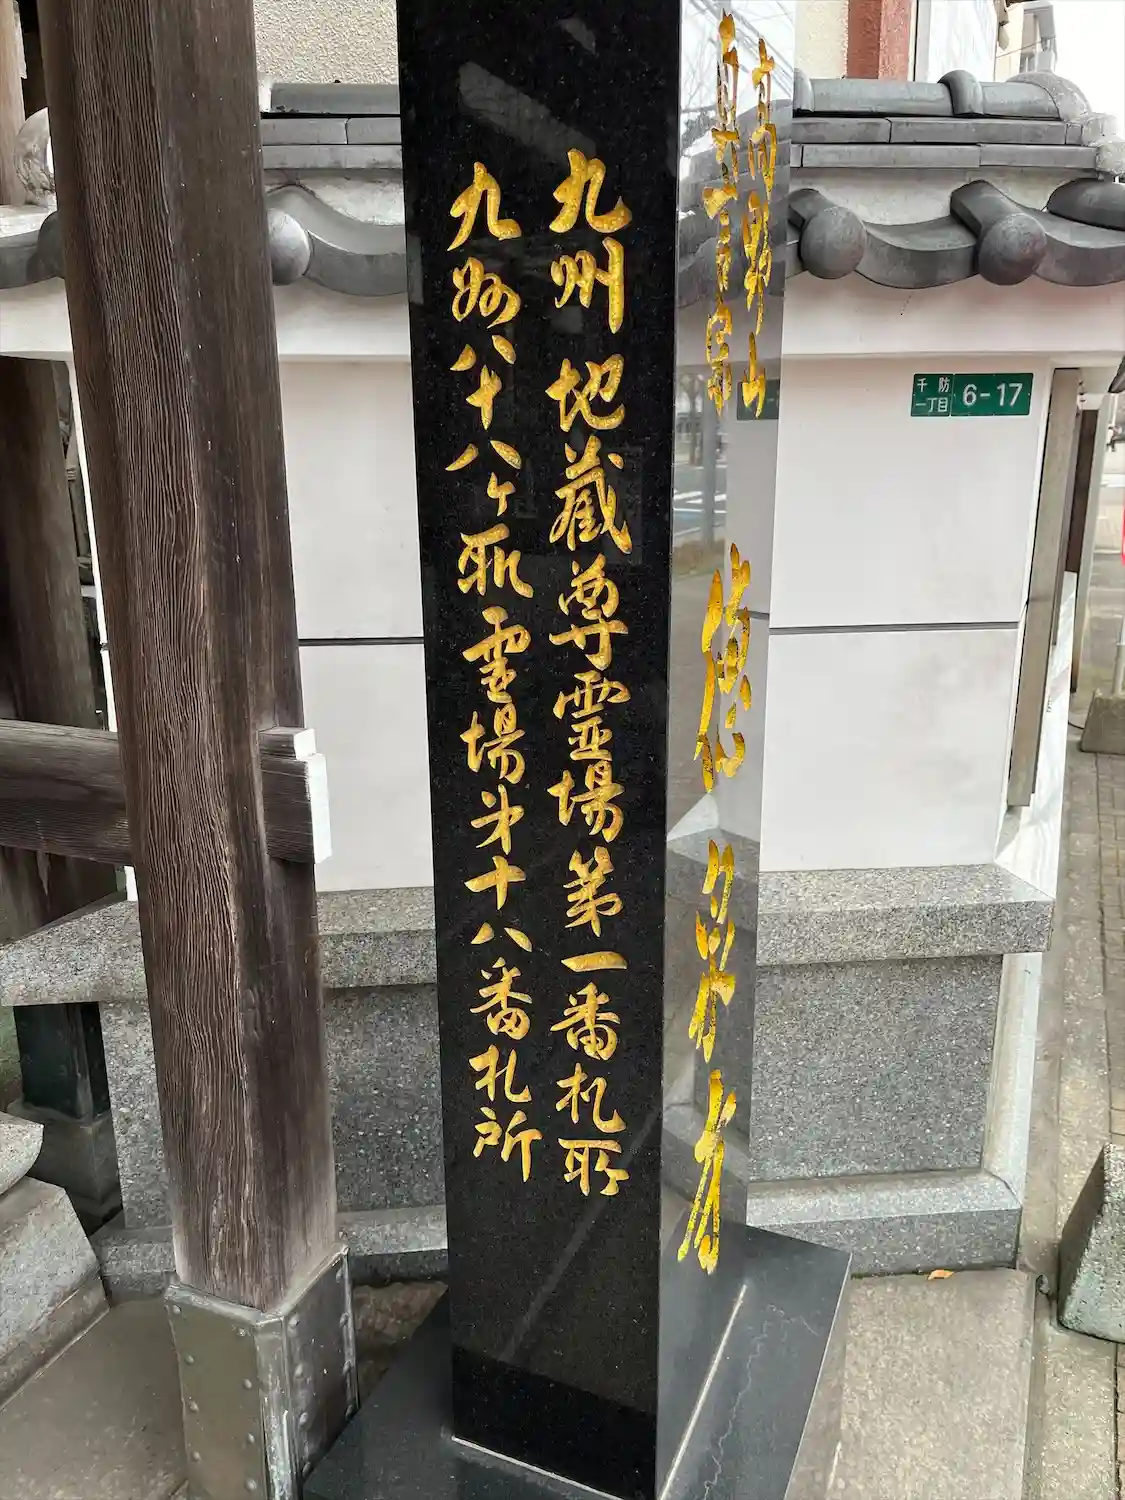 高野山
真言宗
九州地蔵尊霊場第一番札所
九州八十八ヶ所霊場第十八番札所
千防
一丁目
6-17